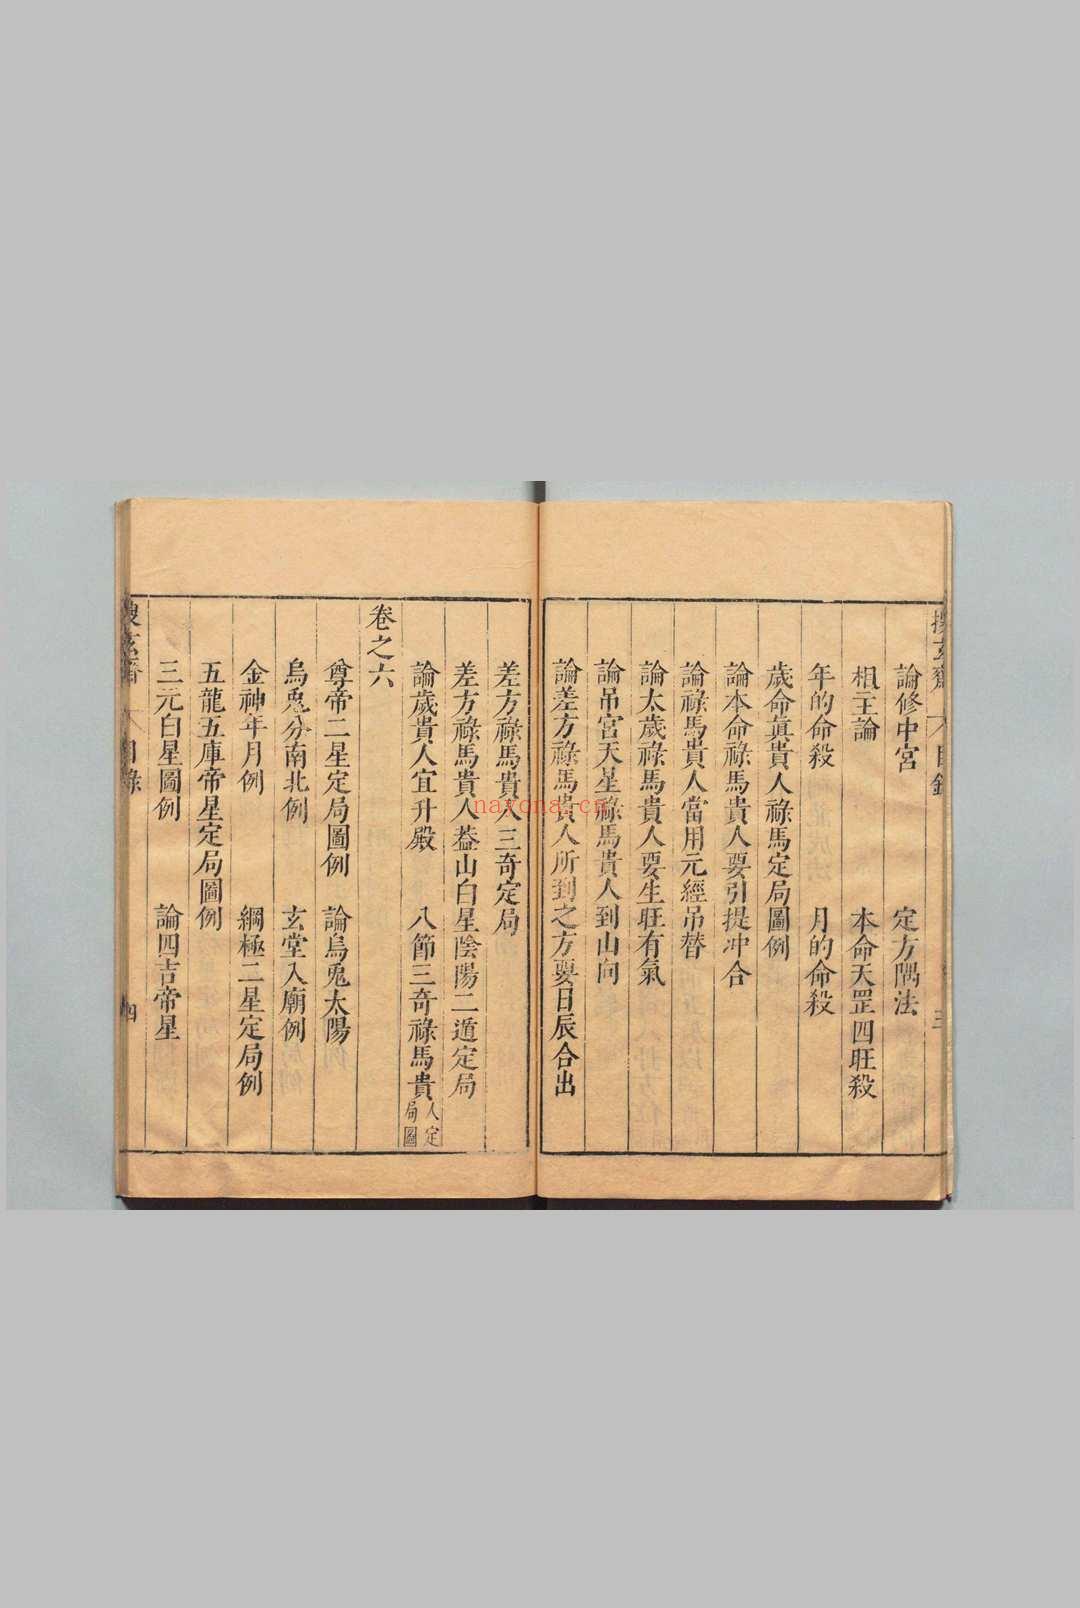 論修中宮　定方隅法
相主論　本命天罡四旺殺
年的命殺　月的命殺
歲命眞貴人祿馬定局圖例
論本命祿馬貴人要引提冲合
論祿馬貴人當用元經吊替
論太歲祿馬貴人要生旺有氣
論吊宮天星祿馬貴人到山向
論差方祿馬貴人所到之方要日辰合出
差方祿馬貴人三奇定局
差方祿馬貴人葢山白星陰陽二遁定局
論歲貴人宜升殿　八節三奇祿馬貴人定局圖
卷之六
尊帝二星定局圖例　論烏兎太陽
烏兎分南北例　玄堂入廟例
金神年月例　綱極二星定局例
五龍五庫帝星定局圖例
三元白星圖例　論四吉帝星
目錄　四
nayona.cn